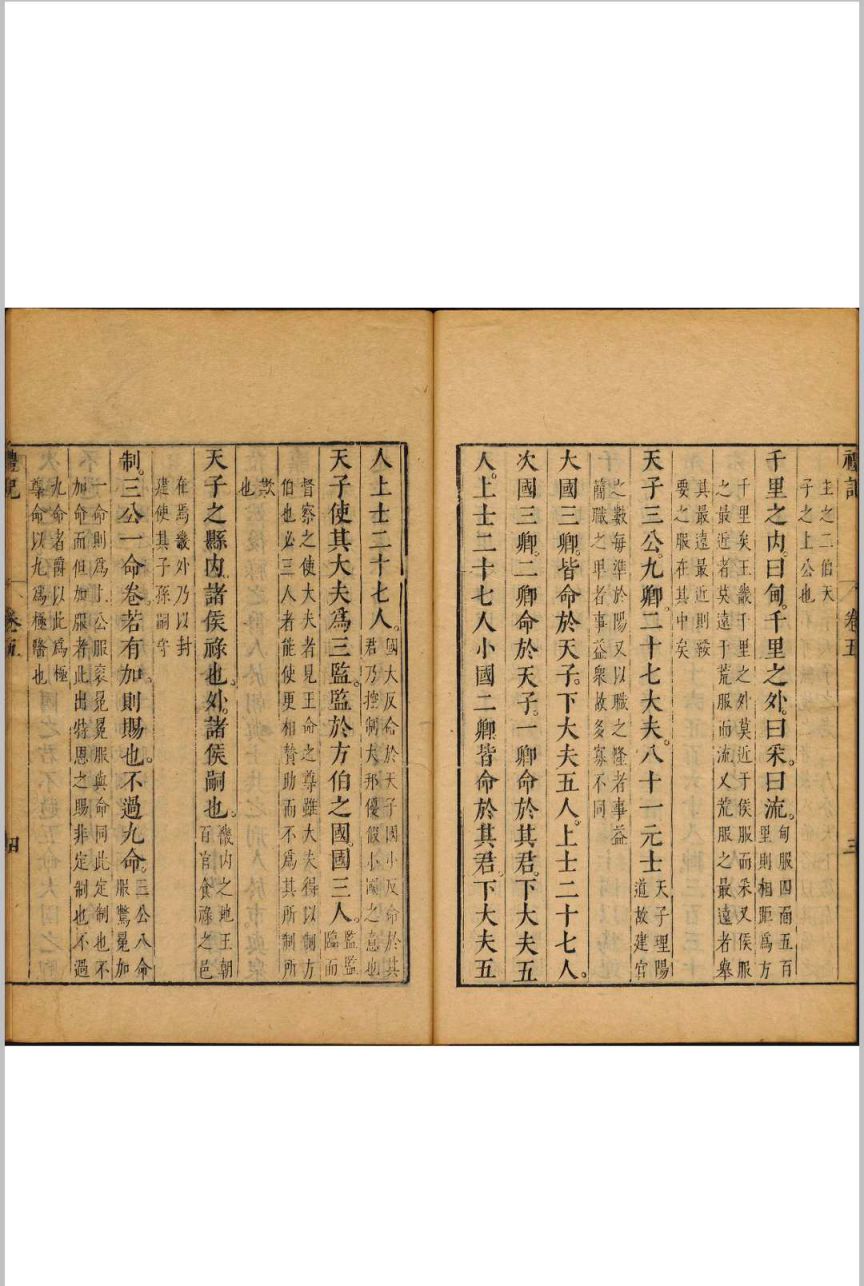 禮記 卷五 三
主之二伯天
子之上公也
千里之內曰甸千里之外曰采曰流
甸服四面五百
里則相距爲方
千里矣王畿千里之外莫近于侯服而采又侯服
之最近者莫遠于荒服而流又荒服之最遠者舉
其最遠最近則綏
要之服在其中矣
天子三公九卿二十七大夫八十一元士
天子理陽
道故建官
之數每準於陽又以職之隆者事益
簡職之卑者事益衆故多寡不同
大國三卿皆命於天子下大夫五人上士二十七人
次國三卿二卿命於天子一卿命於其君下大夫五
人上士二十七人小國二卿皆命於其君下大夫五
人上士二十七人
國大反命於天子國小反命於其
君乃控制大邦優假小國之意也
天子使其大夫爲三監監於方伯之國國三人
監監
臨而
督察之使大夫者見王命之尊雖大夫得以制方
伯也必三人者能使更相贊助而不爲其所制所
歟
也
天子之縣內諸侯祿也外諸侯嗣也
畿內之地王朝
百官食祿之邑
在焉畿外乃以封
建使其子孫嗣守
制三公一命卷若有加則賜也不過九命
三公八命
服鷩冕加
一命則爲上公服衮冕冕服與命同此定制也不
加命而但加服者此出特恩之賜非定制也不過
九命者爵以此爲極
尊命以九爲極隆也
禮記 卷五 四